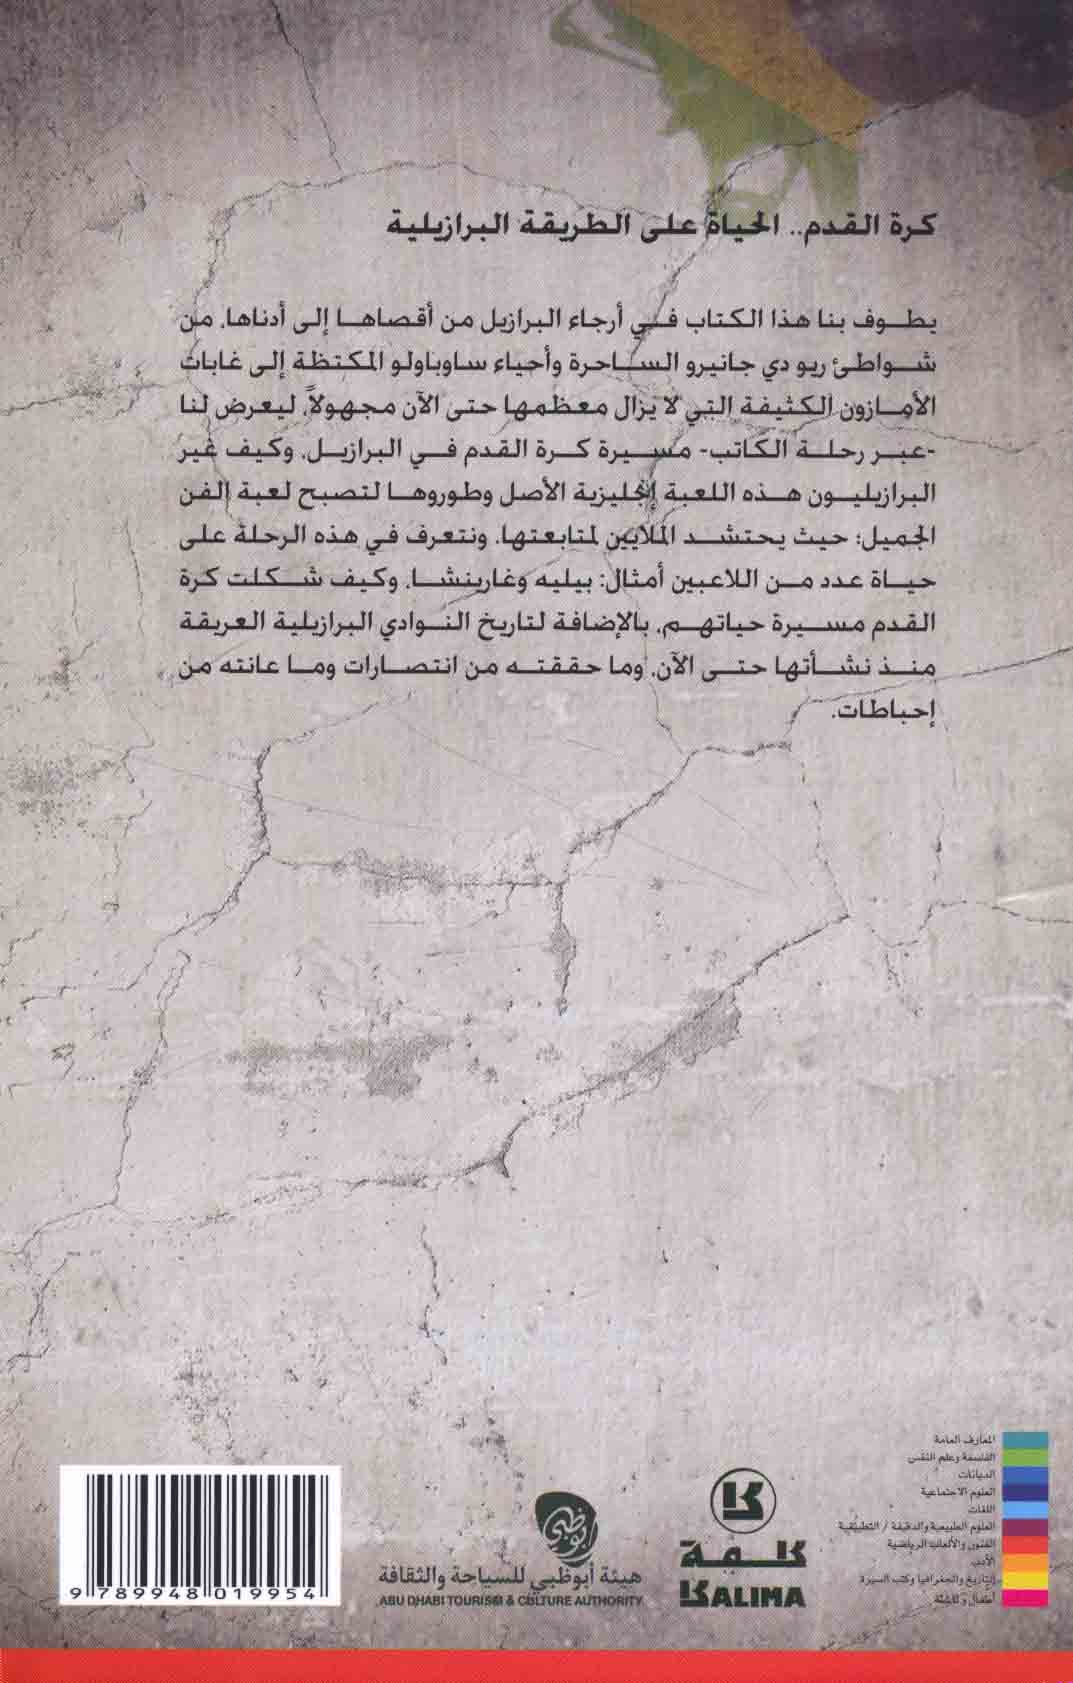 كرة القدم.. الحياة على الطريقة البرازيلية
يطوف بنا هذا الكتاب في أرجاء البرازيل من أقصاها إلى أدناها، من
شواطئ ريو دي جانيرو الساحرة وأحياء ساوباولو المكتظة إلى غابات
الأمازون الكثيفة التي لا يزال معظمها حتى الآن مجهولاً، ليعرض لنا
-عبر رحلة الكاتب- مسيرة كرة القدم في البرازيل، وكيف غير
البرازيليون هذه اللعبة إنجليزية الأصل وطوروها لتصبح لعبة الفن
الجميل؛ حيث يحتشد الملايين لمتابعتها، ونتعرف في هذه الرحلة على
حياة عدد من اللاعبين أمثال: بيليه وغارينشا، وكيف شكلت كرة
القدم مسيرة حياتهم، بالإضافة لتاريخ النوادي البرازيلية العريقة
منذ نشأتها حتى الآن، وما حققته من انتصارات وما عانته من
إحباطات.
المعارف العامة
الفلسفة وعلم النفس
الديانات
العلوم الاجتماعية
اللغات
العلوم الطبيعية والدقيقة / التطبيقية
الفنون والألعاب الرياضية
الأدب
التاريخ والجغرافيا وكتب السيرة
أطفال وناشئة
كلمة
KALIMA
أبوظبي
هيئة أبوظبي للسياحة والثقافة
ABU DHABI TOURISM & CULTURE AUTHORITY
9 789948 019954